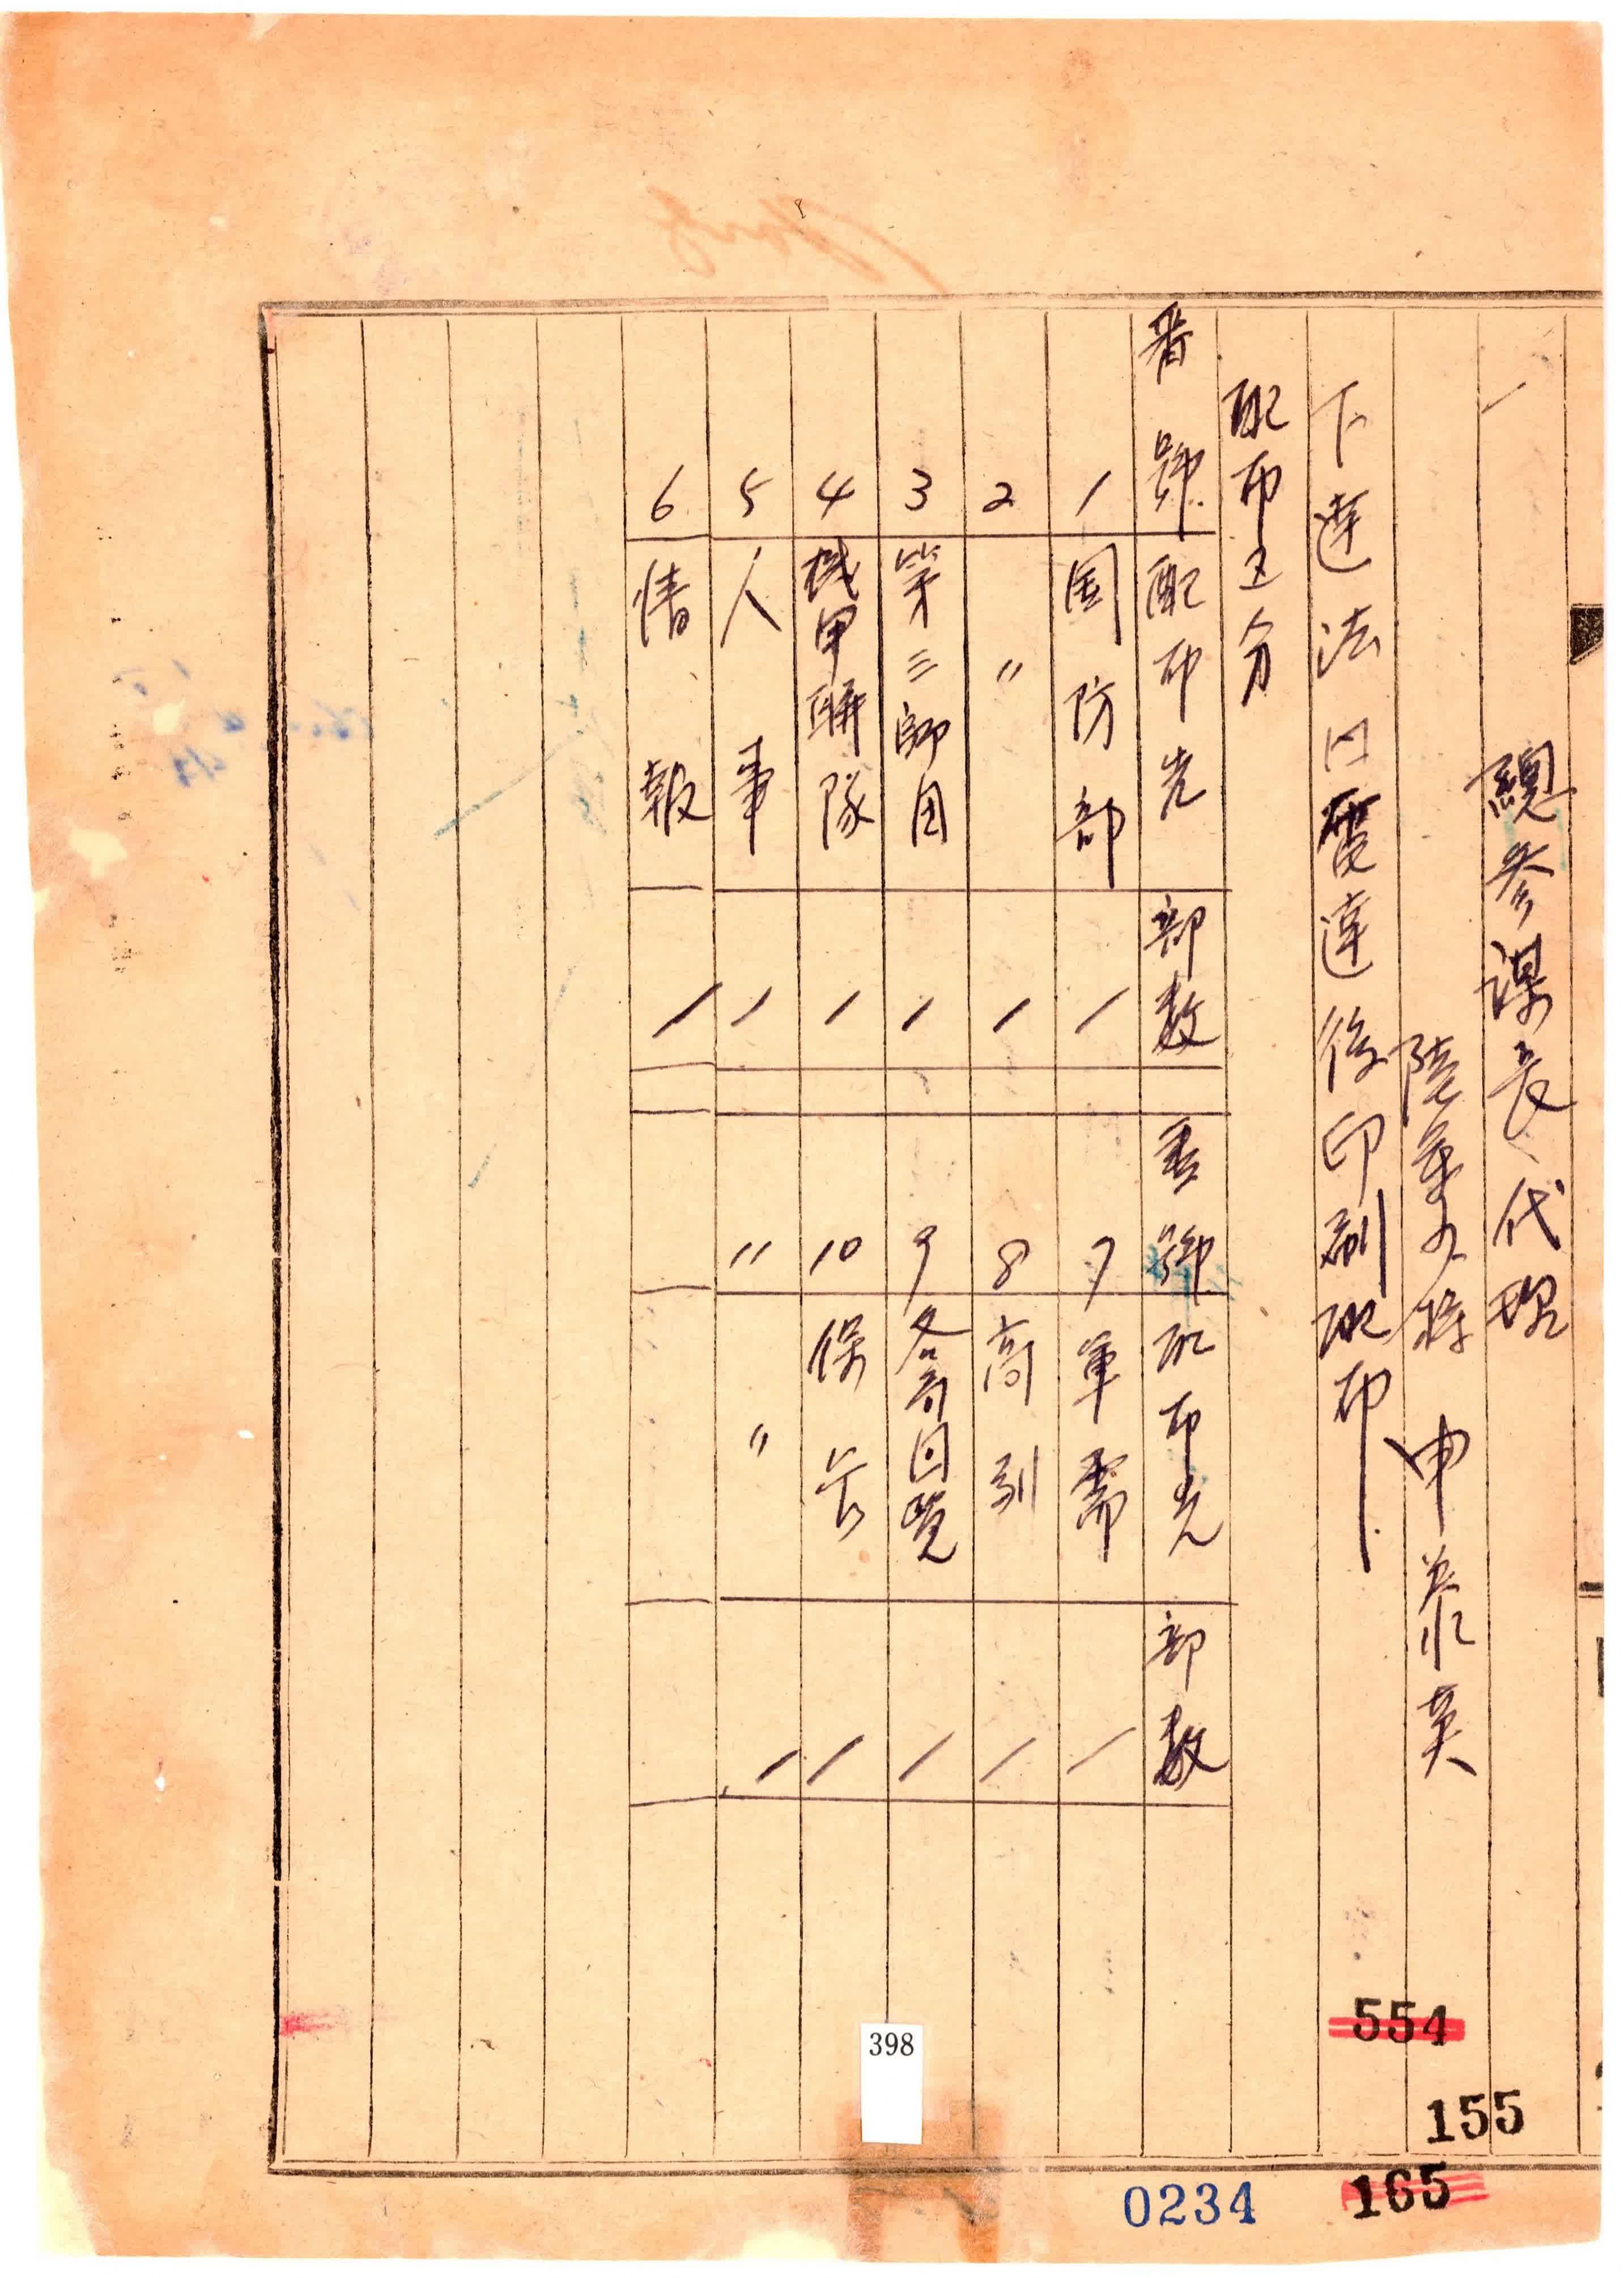 總參謀長代理
陸軍少將 申泰英
下達法 口電達後印刷配布
配布区分
番號 配布先 部数 番號 配布先 部数
1 国防部 1 7 軍需 1
2 〃 1 8 高副 1
3 第三師団 1 9 各局回覧 1
4 機甲聯隊 1 10 保管 1
5 人事 1 〃 〃 1
6 情報 1
554
398
155
165
0234